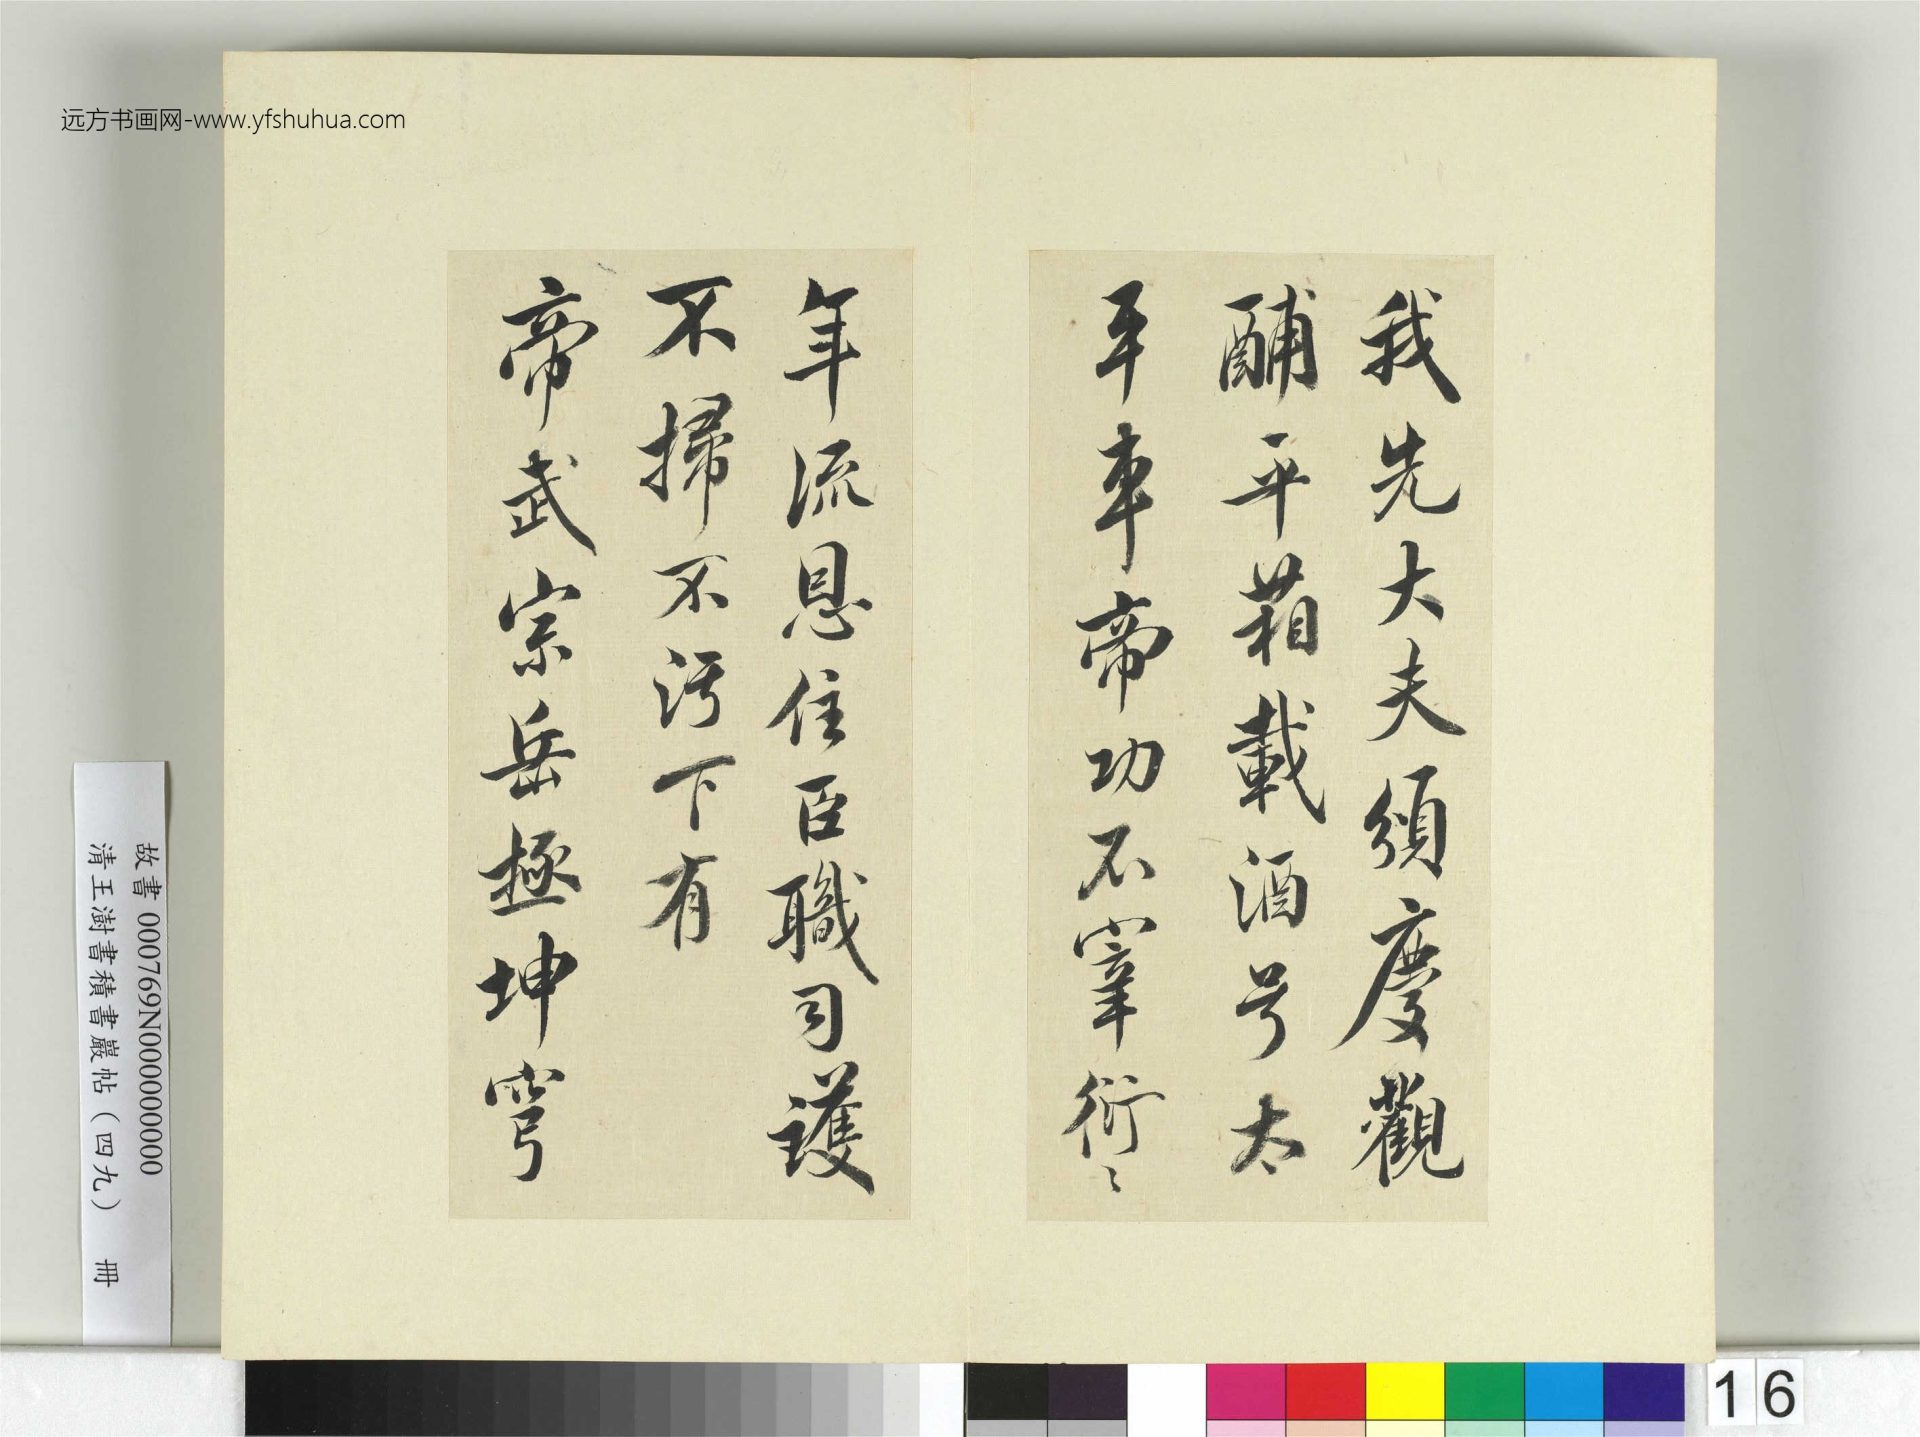 远方书画网-www.yfshuhua.com
我先大夫須慶觀
酺平箱載酒号太
平車帝功不宰衍〻
年流恩住臣職司護
不掃不污下有
帝武宗岳極坤穹
故書 000769N000000000
清王澍書積書巖帖（四九） 冊
16